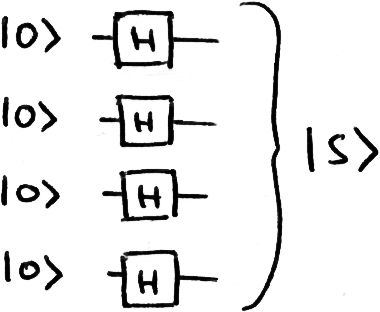 |0> H
|0> H
|0> H
|0> H
|s>